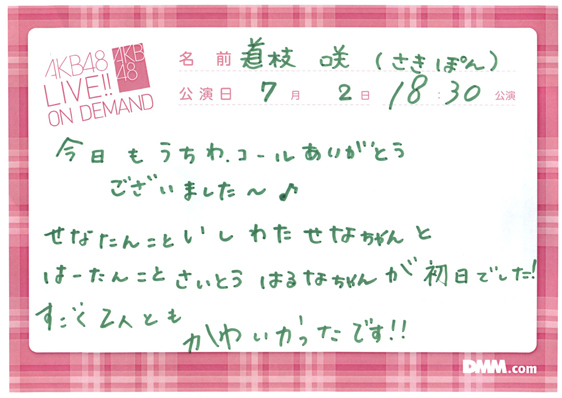 AKB48
LIVE!!
ON DEMAND
AKB
48
名前 道枝 咲 (さきぽん)
公演日 7月 2日 18:30 公演
今日もうちわ、コールありがとう
ございました～♪
せなたんこといしわたせなちゃんと
はーたんことさいとうはるなちゃんが初日でした!
すごく2人とも
かわいかったです!!
DMM.com